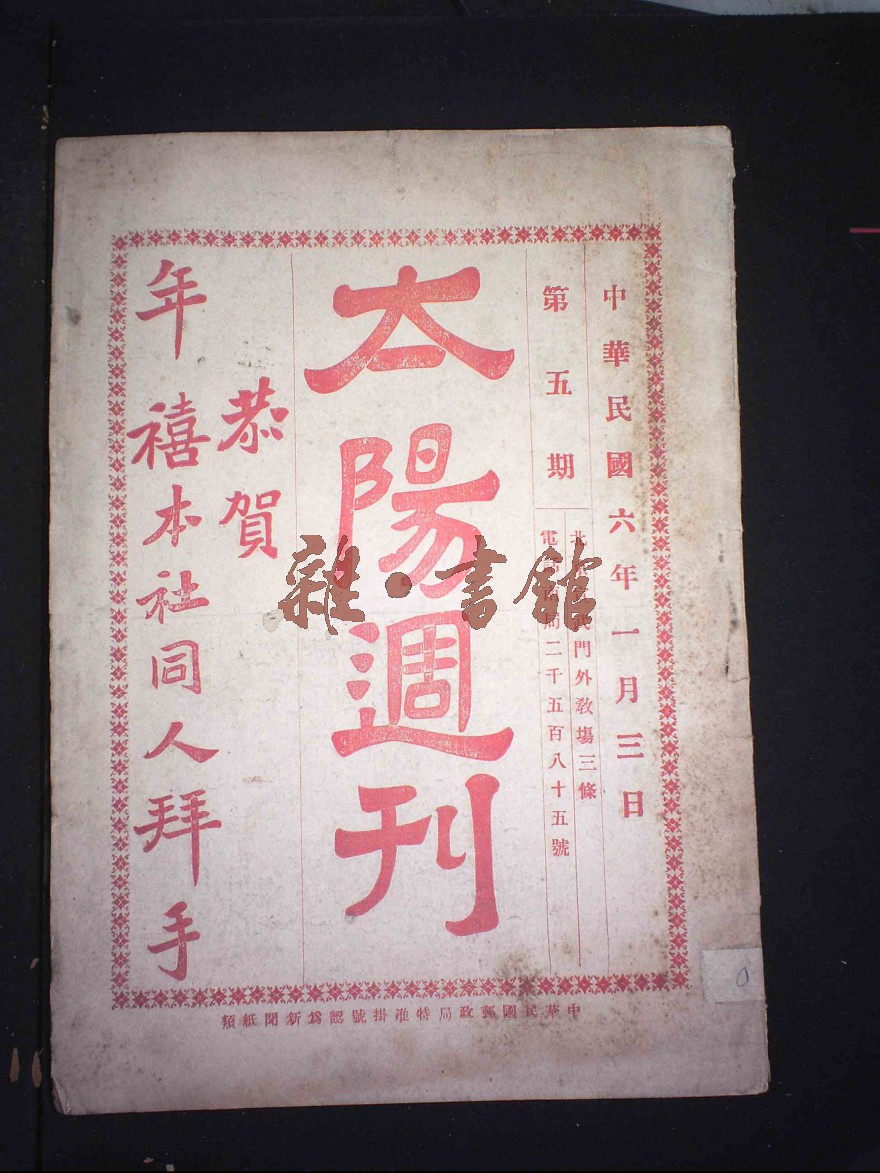 中華民國六年一月三日
第五期
門外敎塲三條
電 二千五百八十五號
太陽週刊
恭賀
年禧本社同人拜手
中華民國郵政局特准掛號認爲新聞紙類
雜·書館